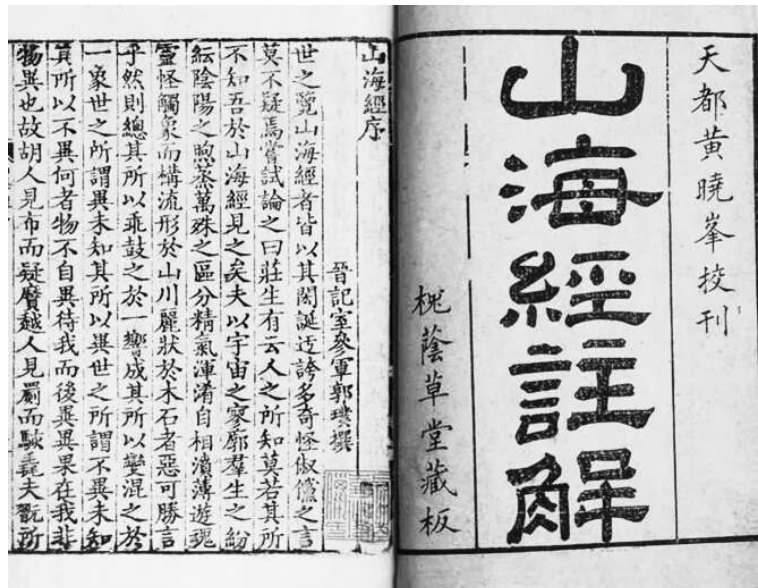 天都黃曉峯校刊
山海經註解
槐蔭草堂藏板
山海經序
晉記室參軍郭璞撰
世之覽山海經者皆以其閎誕迂誇多奇怪俶儻之言
莫不疑焉嘗試論之曰莊生有云人之所知莫若其所
不知吾於山海經見之矣夫以宇宙之寥廓羣生之紛
紜陰陽之煦蒸萬殊之區分精氣渾淆自相濆薄遊魂
靈怪觸象而構流形於山川麗狀於木石者惡可勝言
乎然則總其所以乖鼓之於一響成其所以變混之於
一象世之所謂異未知其所以異世之所謂不異未知
其所以不異何者物不自異待我而後異異果在我非
物異也故胡人見布而疑黂越人見罽而駭毳夫翫所